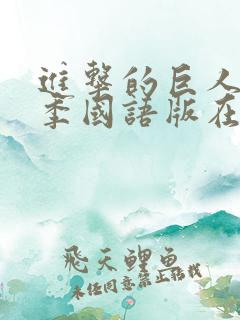 進擊的巨人
季國語版在
飛天鯉魚
未经同意禁止转载